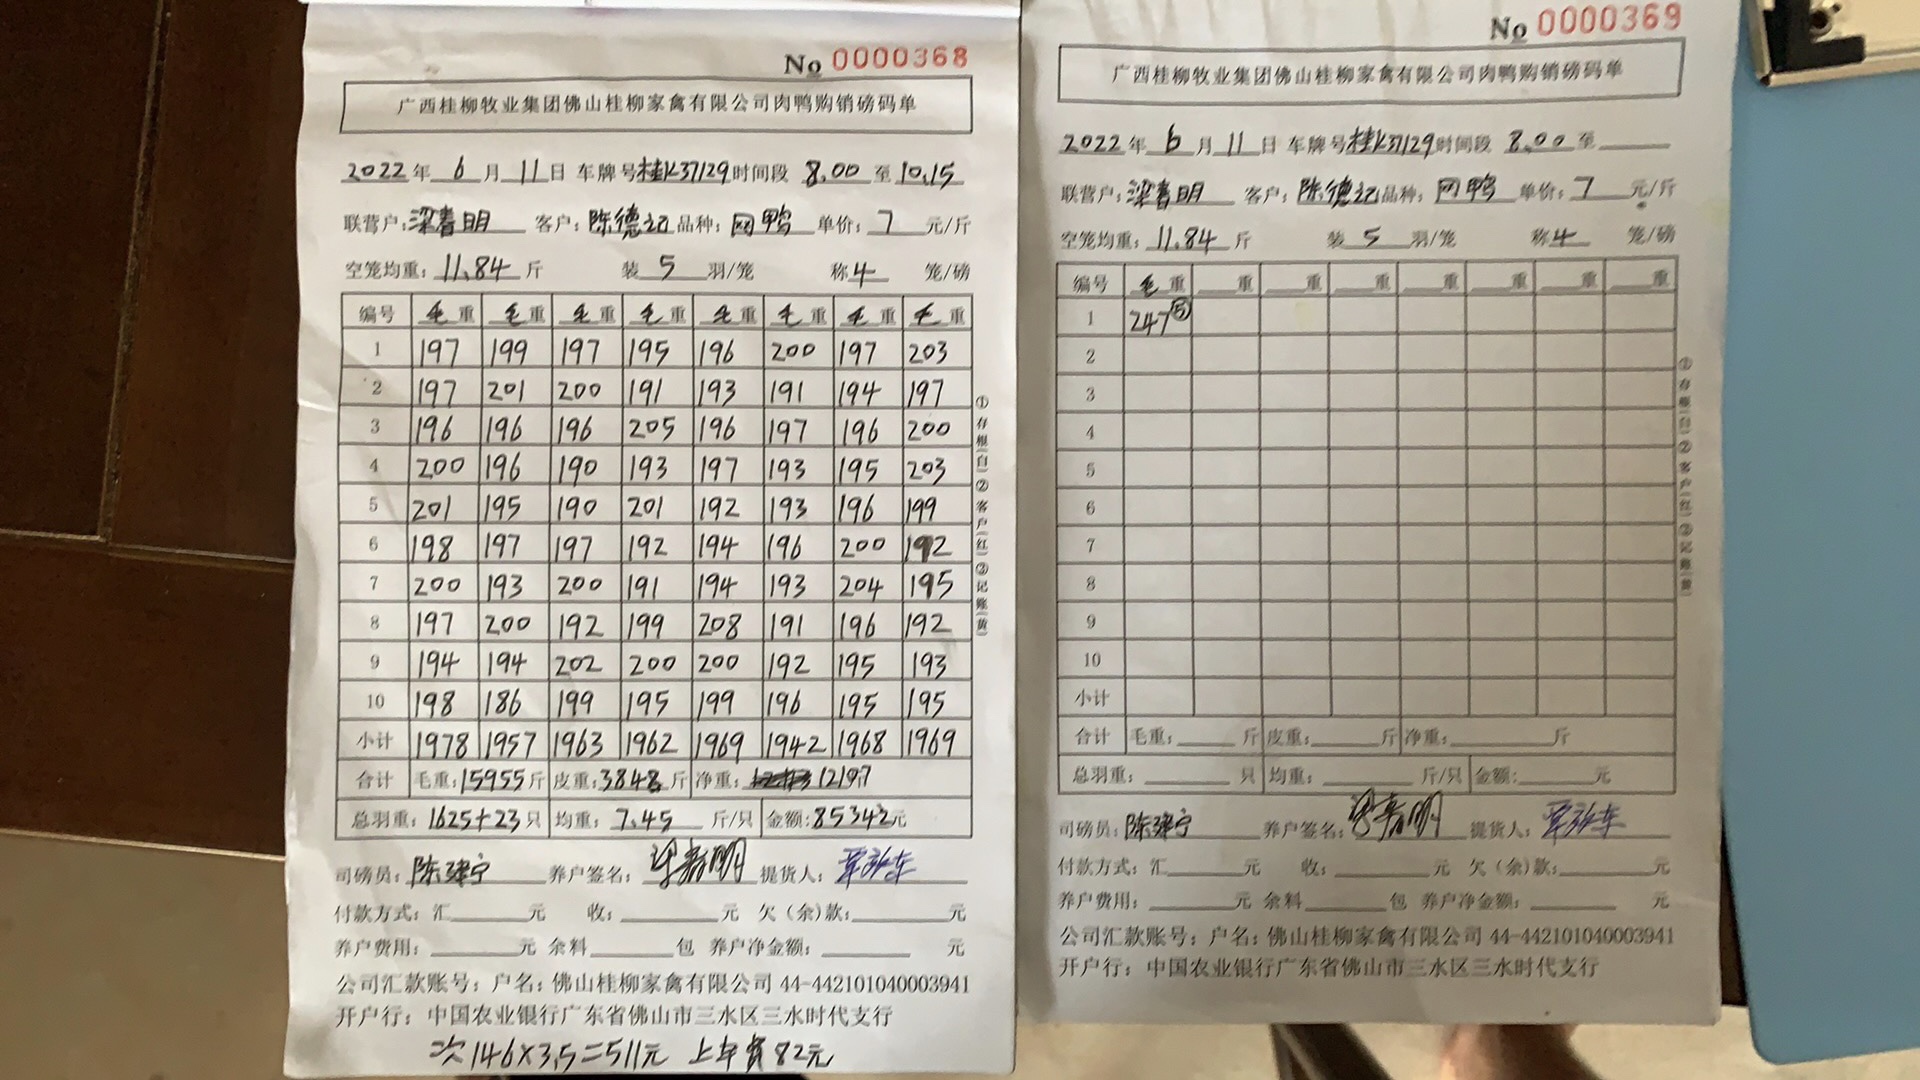 No 0000368
广西桂柳牧业集团佛山桂柳家禽有限公司肉鸭购销磅码单
2022年 6月 11日 车牌号桂K37129时间段 8.00 至 10.15
联营户:梁春明 客户:陈德记 品种:网鸭 单价:7 元/斤
空笼均重:11.84 斤 装 5 羽/笼 称 4 笼/磅
编号 毛重 毛重 毛重 毛重 毛重 毛重 毛重 毛重
1 197 199 197 195 196 200 197 203
2 197 201 200 191 193 191 194 197
3 196 196 196 205 196 197 196 200
4 200 196 190 193 197 193 195 203
5 201 195 190 201 192 193 196 199
6 198 197 197 192 194 196 200 192
7 200 193 200 191 194 193 204 195
8 197 200 192 199 208 191 196 192
9 194 194 202 200 200 192 195 193
10 198 186 199 195 199 196 195 195
小计 1978 1957 1963 1962 1969 1942 1968 1969
合计 毛重:15955斤 皮重:3848斤 净重:12197
总羽重:1625+23只 均重:7.45 斤/只 金额:85342元
司磅员:陈建宁 养户签名: 提货人:
付款方式:汇 元 收: 元 欠(余)款: 元
养户费用: 元 余料 包 养户净金额: 元
公司汇款账号:户名:佛山桂柳家禽有限公司 44-442101040003941
开户行:中国农业银行广东省佛山市三水区三水时代支行
次146×3.5=511元 上车费82元
①存根(白)②客户(红)③记账(黄)
No 0000369
广西桂柳牧业集团佛山桂柳家禽有限公司肉鸭购销磅码单
2022年 6月 11日 车牌号桂K37129时间段 8.00 至
联营户:梁春明 客户:陈德记 品种:网鸭 单价:7 元/斤
空笼均重:11.84 斤 装 5 羽/笼 称 4 笼/磅
编号 毛重 重 重 重 重 重 重 重
1 247⑤
2
3
4
5
6
7
8
9
10
小计
合计 毛重: 斤 皮重: 斤 净重: 斤
总羽重: 只 均重: 斤/只 金额: 元
司磅员:陈建宁 养户签名: 提货人:
付款方式:汇 元 收: 元 欠(余)款: 元
养户费用: 元 余料 包 养户净金额: 元
公司汇款账号:户名:佛山桂柳家禽有限公司 44-442101040003941
开户行:中国农业银行广东省佛山市三水区三水时代支行
①存根(白)②客户(红)③记账(黄)